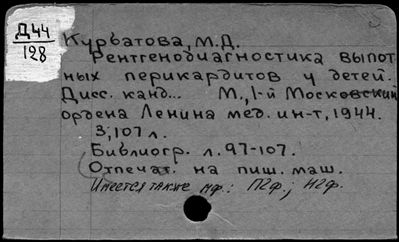 Д44
128
Курбатова, М.Д.
Рентгенодиагностика выпот-
ных перикардитов у детей.
Дисс. канд... М., 1-й Московский
ордена Ленина мед. ин-т, 1944.
3, 107 л.
Библиогр. л. 97-107.
Отпечат. на пиш. маш.
Имеется также мф.: П2ф.; Н2ф.